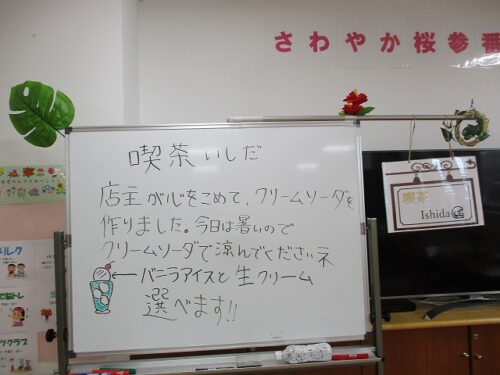 さわやか桜参番
喫茶いしだ
店主が心をこめて、クリームソーダを
作りました。今日は暑いので
クリームソーダで涼んでくださいネ
←バニラアイスと生クリーム
選べます!!
喫茶
Ishida